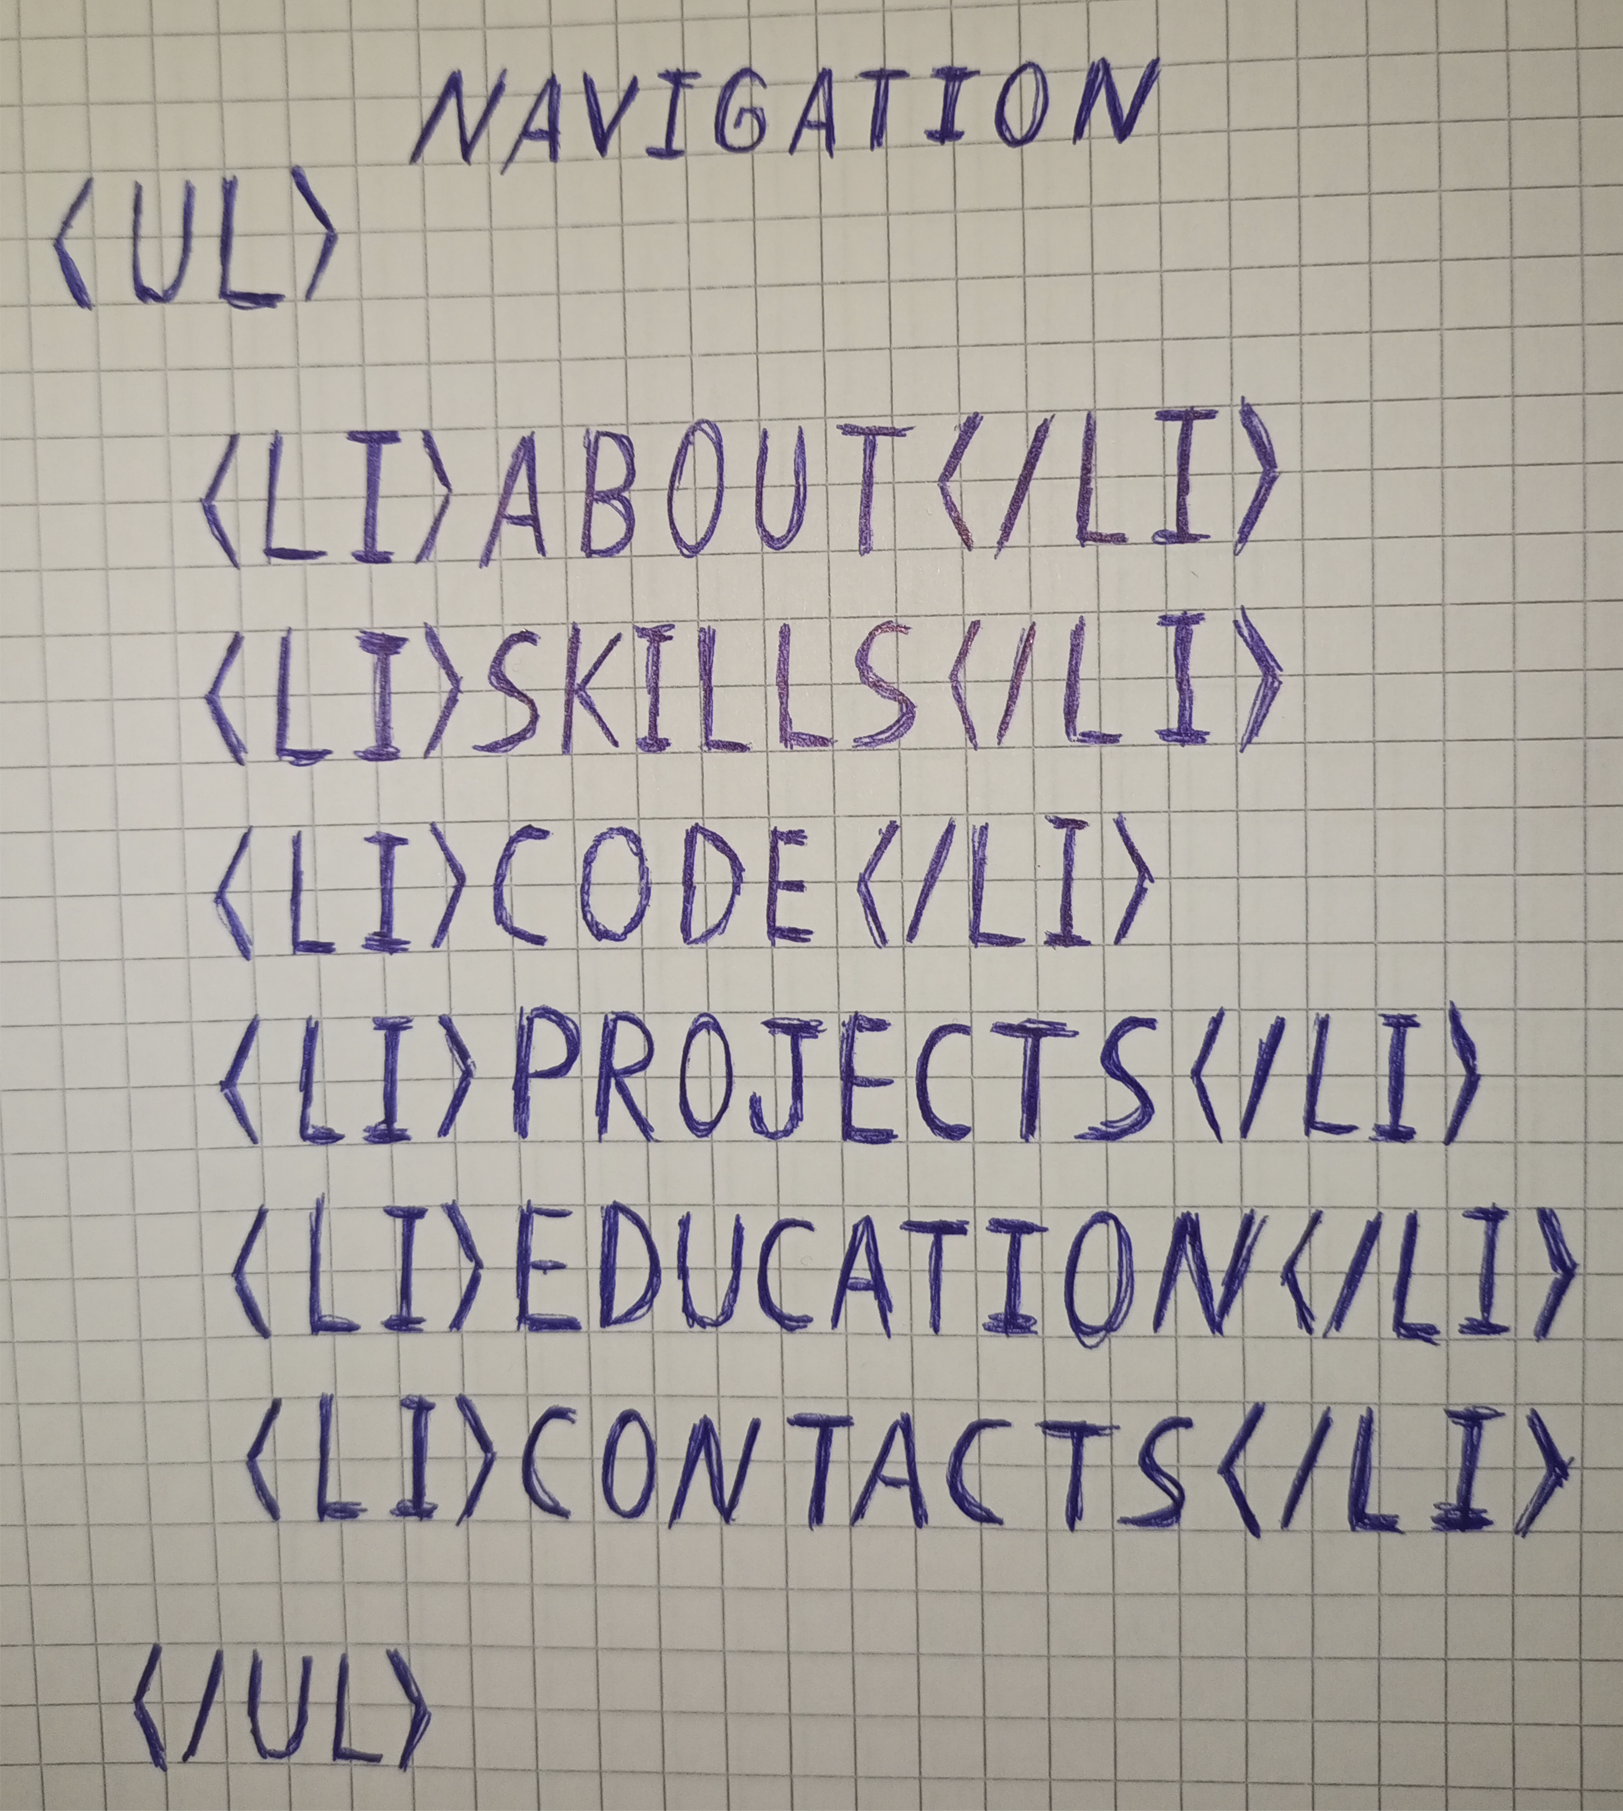 NAVIGATION
<UL>
<LI>ABOUT</LI>
<LI>SKILLS</LI>
<LI>CODE</LI>
<LI>PROJECTS</LI>
<LI>EDUCATION</LI>
<LI>CONTACTS</LI>
</UL>